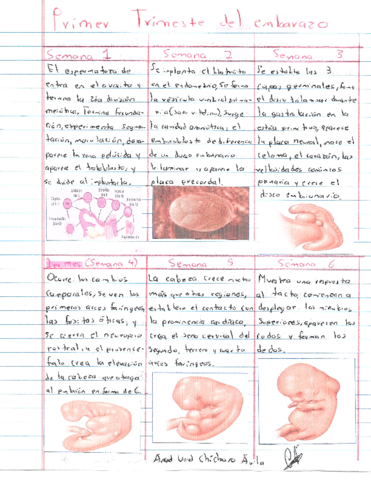 Primer Trimestre del embarazo
Semana 1
El espermatozoide
entra en el ovocito y
termina la 2da división
meiótica, termina fecunda-
ción, experimenta segmen-
tación, desa-
parece la zona pelúcida y
aparece el trofoblasto, y
se divide al implantarse.
Semana 2
Se implanta el blastocito
en el endometrio, se forma
la vesícula umbilical prima-
la cavidad amniótica, el
embrioblasto se diferencia
en un disco embrionario
bilaminar y aparece la
placa precordal.
Semana 3
Se establecen las 3
capas germinales, forma
el disco trilaminar durante
la gastrulación en la
estría primitiva, aparece
la placa neural, nace el
celoma, el corazón, las
vellosidades coriónicas
primaria y crece el
disco embrionario.
(Semana 4)
Ocurre los cambios
corporales, se ven los
primeros arcos faríngeos,
las fositas óticas, y
se cierra el neuroporo
rostral, y el prosencé-
falo crea la elevación
de la cabeza que atrapa
al embrión en forma de C.
Semana 5
La cabeza crece mucho
más que otras regiones,
establece el contacto con
la prominencia cardiaca,
crea el seno cervical del
segundo, tercer y cuarto
arcos faríngeos.
Semana 6
Muestra una respuesta
al tacto, comienzan a
desplegar los miembros
superiores, aparecen los
codos y forman los
dedos.
Chicharo Avila